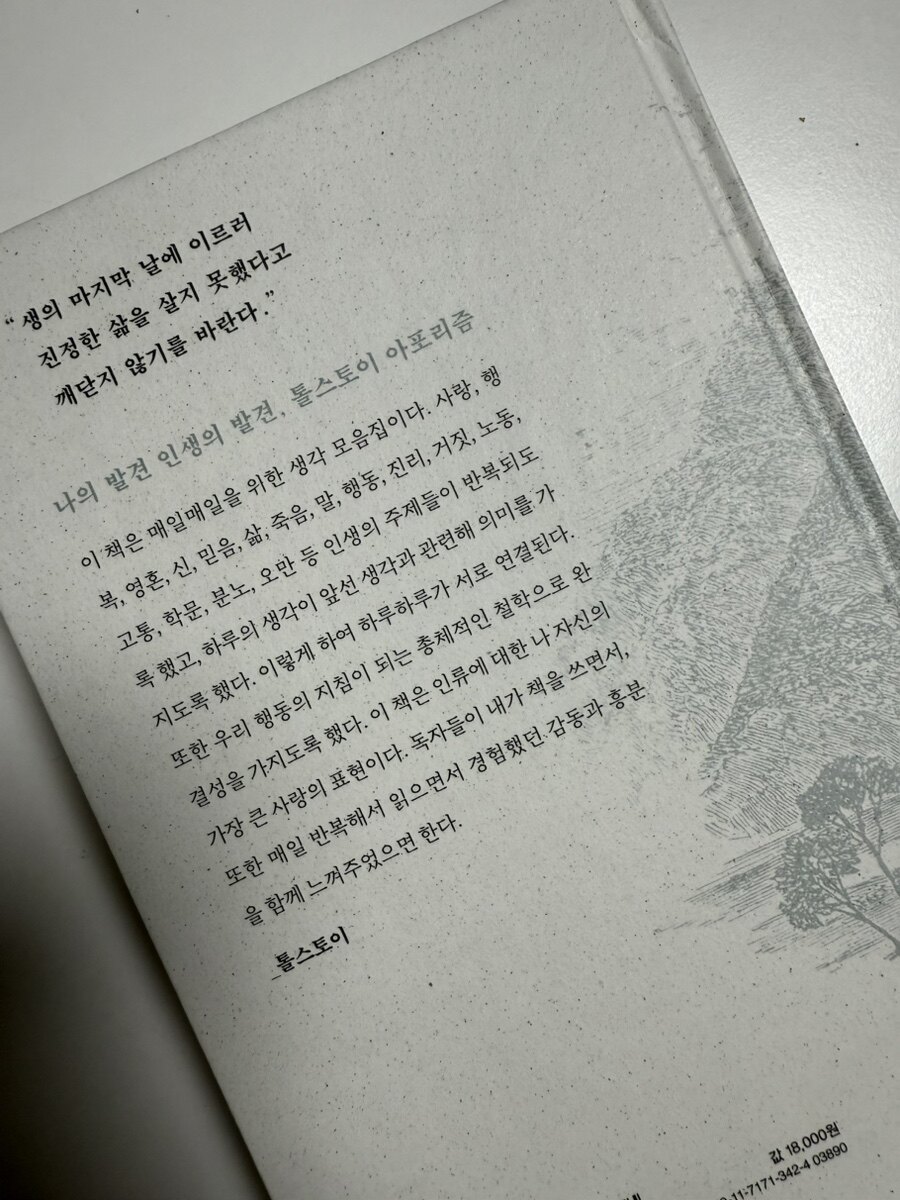 “ 생의 마지막 날에 이르러
진정한 삶을 살지 못했다고
깨닫지 않기를 바란다 .”
나의 발견 인생의 발견, 톨스토이 아포리즘
이 책은 매일매일을 위한 생각 모음집이다. 사랑, 행
복, 영혼, 신, 믿음, 삶, 죽음, 말, 행동, 진리, 거짓, 노동,
고통, 학문, 분노, 오만 등 인생의 주제들이 반복되도
록 했고, 하루의 생각이 앞선 생각과 관련해 의미를 가
지도록 했다. 이렇게 하여 하루하루가 서로 연결된다.
또한 우리 행동의 지침이 되는 총체적인 철학으로 완
결성을 가지도록 했다. 이 책은 인류에 대한 나 자신의
가장 큰 사랑의 표현이다. 독자들이 내가 책을 쓰면서,
또한 매일 반복해서 읽으면서 경험했던 감동과 흥분
을 함께 느껴주었으면 한다.
_톨스토이
값 18,000원
-11-7171-342-4 03890